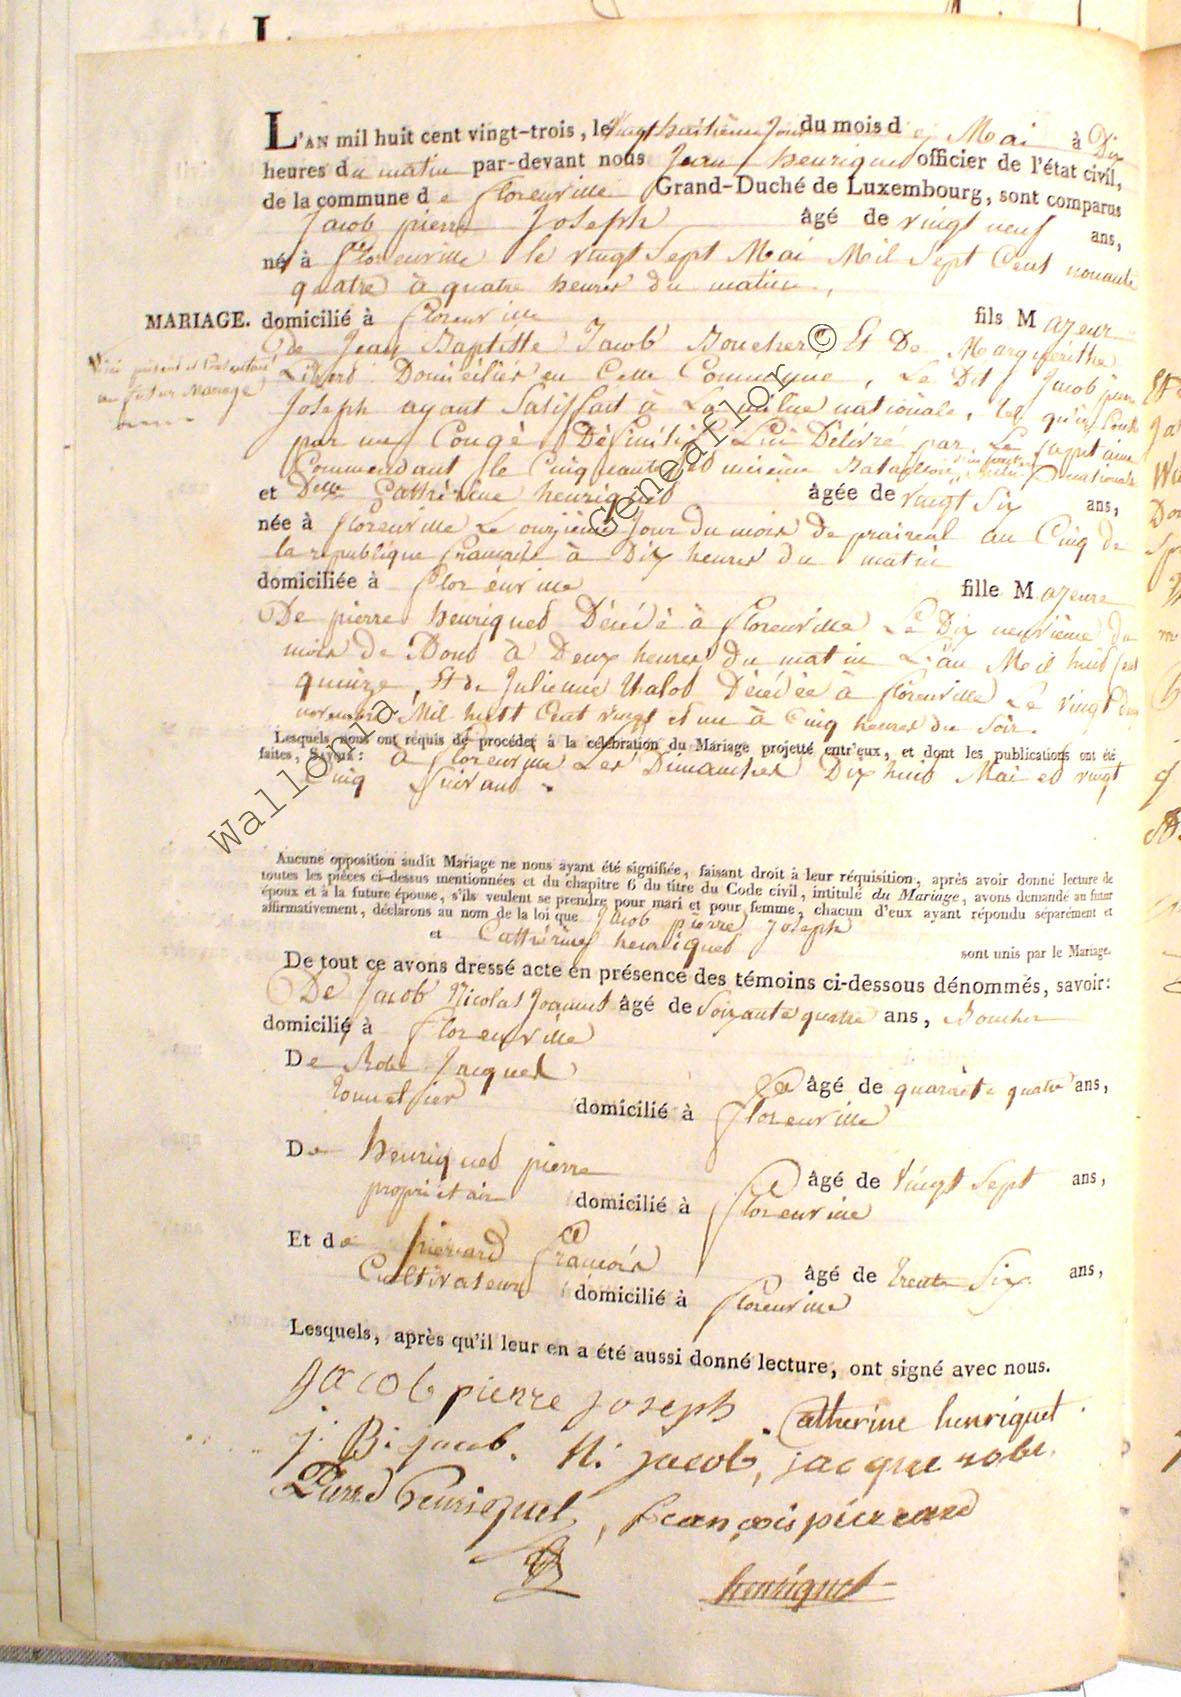 L'AN mil huit cent vingt-trois, le vingt huitième jour du mois de Mai à Dix
heures du matin par-devant nous Jean henriquet officier de l'état civil,
de la commune de florenville Grand-Duché de Luxembourg, sont comparus
Jacob pierre Joseph âgé de vingt neuf ans,
né à florenville le vingt Sept Mai Mil Sept Cent nonante
quatre à quatre heures du matin,
MARIAGE. domicilié à florenville fils Majeur
de Jean Baptiste Jacob Boucher Et De Marguerithe
ici présent et Consentant
au futur Mariage
Domiciliés en Cette Commune, Le Dit Jacob pierre
Joseph ayant Satisffait à La milice nationale, tel qu'il Conste
par un Congé Définitif Lui Délivré par Le Capitaine
Commendant le Cinquante Bataillon nationale
et Delle Catthérine henriquet âgée de vingt Six ans,
née à florenville Le onzième Jour du mois de praireal an Cinq de
la republique francaise à Dix heures du matin
domiciliée à florenville fille Majeure
De pierre henriquet Décédé à florenville Le Dix neuvième du
mois de D'out à Deux heures du matin L'an Mil huit Cent
quinze, Et de Julienne thalot Décédée à florenville Le vingt
novembre Mil huit Cent vingt et un à Cinq heures du Soir.
Lesquels nous ont requis de procéder à la célébration du Mariage projetté entr'eux, et dont les publications ont été
faites, Savoir: à florenville Les Dimanches Dix huit Mai et vingt
Cinq Suivant.
Aucune opposition audit Mariage ne nous ayant été signifiée, faisant droit à leur réquisition, après avoir donné lecture de
toutes les pièces ci-dessus mentionnées et du chapitre 6 du titre du Code civil, intitulé du Mariage, avons demandé au futur
époux et à la future épouse, s'ils veulent se prendre pour mari et pour femme, chacun d'eux ayant répondu séparément et
affirmativement, déclarons au nom de la loi que Jacob pierre Joseph
et Catthérine henriquet sont unis par le Mariage.
De tout ce avons dressé acte en présence des témoins ci-dessous dénommés, savoir:
De Jacob Nicolas Joannes âgé de Soixante quatre ans, Boucher
domicilié à florenville
De Robe Jacques âgé de quarante quatre ans,
Tonnelier domicilié à florenville
De henriquet pierre âgé de Vingt Sept ans,
propriétair domicilié à florenville
Et de pierard francois âgé de trente Six ans,
Cultivateur domicilié à florenville
Lesquels, après qu'il leur en a été aussi donné lecture, ont signé avec nous.
jacob pierre joseph Catherine henriquet
j. B. jacob. N. jacob, jacque robe
Pierre henriquet, François pierrard
henriquet
Wallonia © Geneaflor